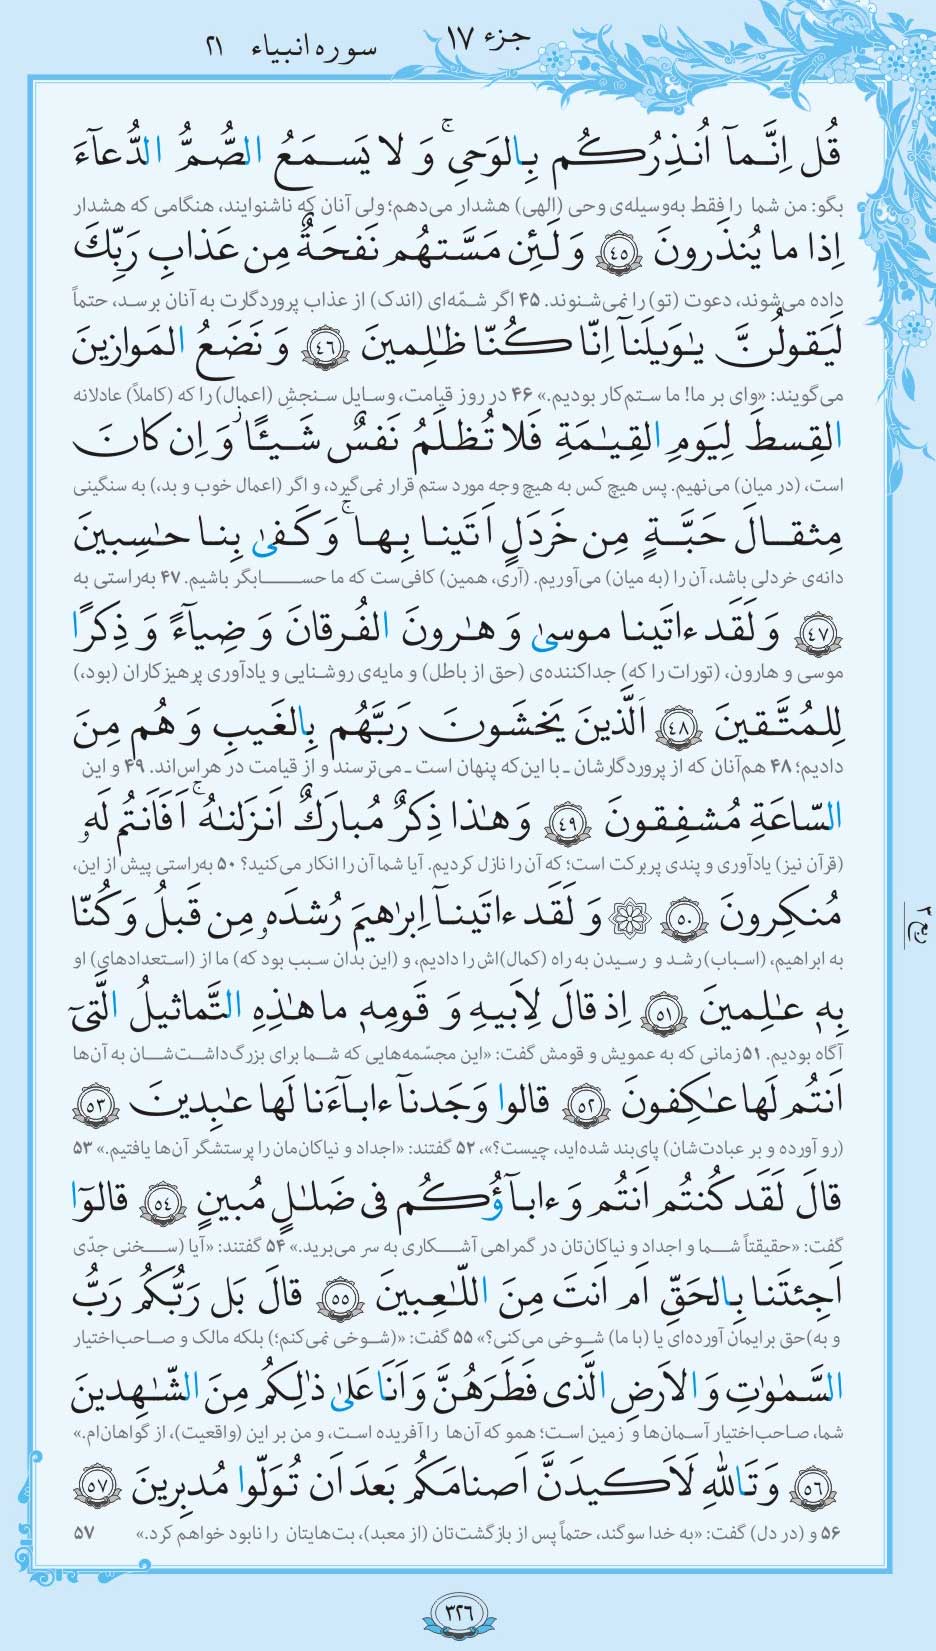 جزء ۱۷
سوره انبیاء ۲۱
قُل اِنَّمآ اُنذِرُكُم بِالوَحىِ ۚ وَ لا يَسمَعُ الصُّمُّ الدُّعآءَ
بگو: من شما را فقط به‌وسیله‌ی وحی (الهی) هشدار می‌دهم؛ ولی آنان که ناشنوایند، هنگامی که هشدار
اِذا ما يُنذَرونَ ﴿٤٥﴾ وَ لَئِن مَسَّتهُم نَفحَةٌ مِن عَذابِ رَبِّكَ
داده می‌شوند، دعوت (تو) را نمی‌شنوند. ۴۵ اگر شمّه‌ای (اندک) از عذاب پروردگارت به آنان برسد، حتماً
لَيَقولُنَّ يٰوَيلَنآ اِنّا كُنّا ظٰلِمينَ ﴿٤٦﴾ وَ نَضَعُ المَوازينَ
می‌گویند: «وای بر ما! ما ستم‌کار بودیم.» ۴۶ در روز قیامت، وسایل سنجشِ (اعمال) را که (کاملاً) عادلانه
القِسطَ لِيَومِ القِيٰمَةِ فَلا تُظلَمُ نَفسٌ شَيـًٔا ۖ وَ اِن كانَ
است، (در میان) می‌نهیم. پس هیچ کس به هیچ وجه مورد ستم قرار نمی‌گیرد، و اگر (اعمال خوب و بد،) به سنگینی
مِثقالَ حَبَّةٍ مِن خَردَلٍ اَتَينا بِها ۚ وَ كَفىٰ بِنا حٰسِبينَ
دانه‌ی خردلی باشد، آن را (به میان) می‌آوریم. (آری، همین) کافی‌ست که ما حسابگر باشیم. ۴۷ به‌راستی به
﴿٤٧﴾ وَ لَقَد ءاتَينا موسىٰ وَ هٰرونَ الفُرقانَ وَ ضِيآءً وَ ذِكرًا
موسی و هارون، (تورات را که) جداکننده‌ی (حق از باطل) و مایه‌ی روشنایی و یادآوری پرهیزکاران (بود،)
لِلمُتَّقينَ ﴿٤٨﴾ اَلَّذينَ يَخشَونَ رَبَّهُم بِالغَيبِ وَ هُم مِنَ
دادیم؛ ۴۸ هم‌آنان که از پروردگارشان ـ با این‌که پنهان است ـ می‌ترسند و از قیامت در هراس‌اند. ۴۹ و این
السّاعَةِ مُشفِقونَ ﴿٤٩﴾ وَ هٰذا ذِكرٌ مُبارَكٌ اَنزَلنٰهُ ۚ اَفَاَنتُم لَهو
(قرآن نیز) یادآوری و پندی پربرکت است؛ که آن را نازل کردیم. آیا شما آن را انکار می‌کنید؟ ۵۰ به‌راستی پیش از این،
مُنكِرونَ ﴿٥٠﴾ ۞ وَ لَقَد ءاتَينآ اِبرٰهيمَ رُشدَهو مِن قَبلُ وَ كُنّا
به ابراهیم، (اسباب) رشد و رسیدن به راه (کمال)اش را دادیم، و (این بدان سبب بود که) ما از (استعدادهایِ) او
بِهى عٰلِمينَ ﴿٥١﴾ اِذ قالَ لِاَبيهِ وَ قَومِهى ما هٰذِهِ التَّماثيلُ الَّتىٓ
آگاه بودیم. ۵۱ زمانی که به عمویش و قومش گفت: «این مجسّمه‌هایی که شما برای بزرگ‌داشت‌شان به آن‌ها
اَنتُم لَها عٰكِفونَ ﴿٥٢﴾ قالوا وَجَدنآ ءابآءَنا لَها عٰبِدينَ ﴿٥٣﴾
(رو آورده و بر عبادت‌شان) پای‌بند شده‌اید، چیست؟»، ۵۲ گفتند: «اجداد و نیاکان‌مان را پرستشگر آن‌ها یافتیم.» ۵۳
قالَ لَقَد كُنتُم اَنتُم وَ ءابآؤُكُم فى ضَلٰلٍ مُبينٍ ﴿٥٤﴾ قالوٓا
گفت: «حقیقتاً شما و اجداد و نیاکان‌تان در گمراهی آشکاری به سر می‌برید.» ۵۴ گفتند: «آیا (سخنی جدّی
اَجِئتَنا بِالحَقِّ اَم اَنتَ مِنَ اللّٰعِبينَ ﴿٥٥﴾ قالَ بَل رَبُّكُم رَبُّ
و به) حق برایمان آورده‌ای یا (با ما) شوخی می‌کنی؟» ۵۵ گفت: «(شوخی نمی‌کنم؛) بلکه مالک و صاحب‌اختیار
السَّمٰوٰتِ وَ الاَرضِ الَّذى فَطَرَهُنَّ وَ اَنَا عَلىٰ ذٰلِكُم مِنَ الشّٰهِدينَ
شما، صاحب‌اختیار آسمان‌ها و زمین است؛ همو که آن‌ها را آفریده است، و من بر این (واقعیت)، از گواهان‌ام.»
﴿٥٦﴾ وَ تَاللّٰهِ لَاَكيدَنَّ اَصنامَكُم بَعدَ اَن تُوَلّوا مُدبِرينَ ﴿٥٧﴾
۵۶ و (در دل) گفت: «به خدا سوگند، حتماً پس از بازگشت‌تان (از معبد)، بت‌هایتان را نابود خواهم کرد.» ۵۷
ربع ۳
۳۲۶